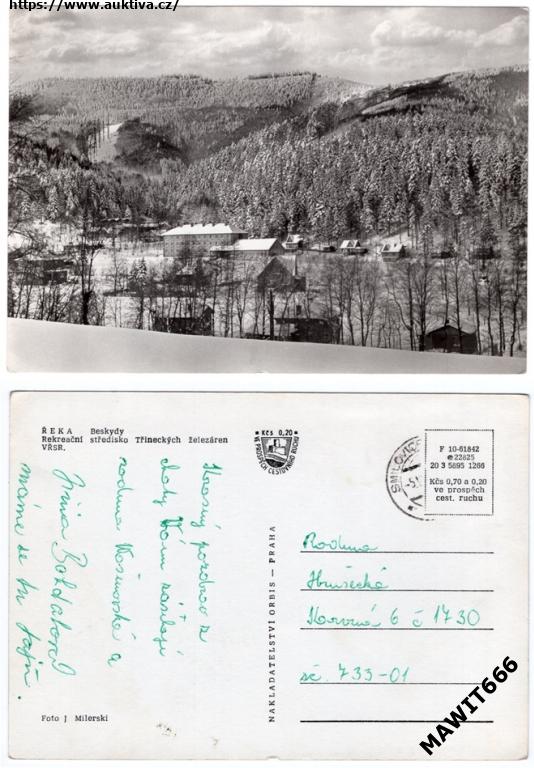 https://www.auktiva.cz/
ŘEKA Beskydy
Rekreační středisko Třineckých železáren
VŘSR.
Kčs 0,20
VE PROSPĚCH CESTOVNÍHO RUCHU
SMILOVICE
F 10-61842
e 22625
20 3 5695 1266
Kčs 0,70 a 0,20
ve prospěch
cest. ruchu
Krásný pozdrav z
chaty Vám zasílají
rodina
a
máme se tu fajn.
NAKLADATELSTVÍ ORBIS — PRAHA
Rodina
Hrušecká
Karviná 6 č 1730
sč. 733-01
Foto J Milerski
MAWIT666